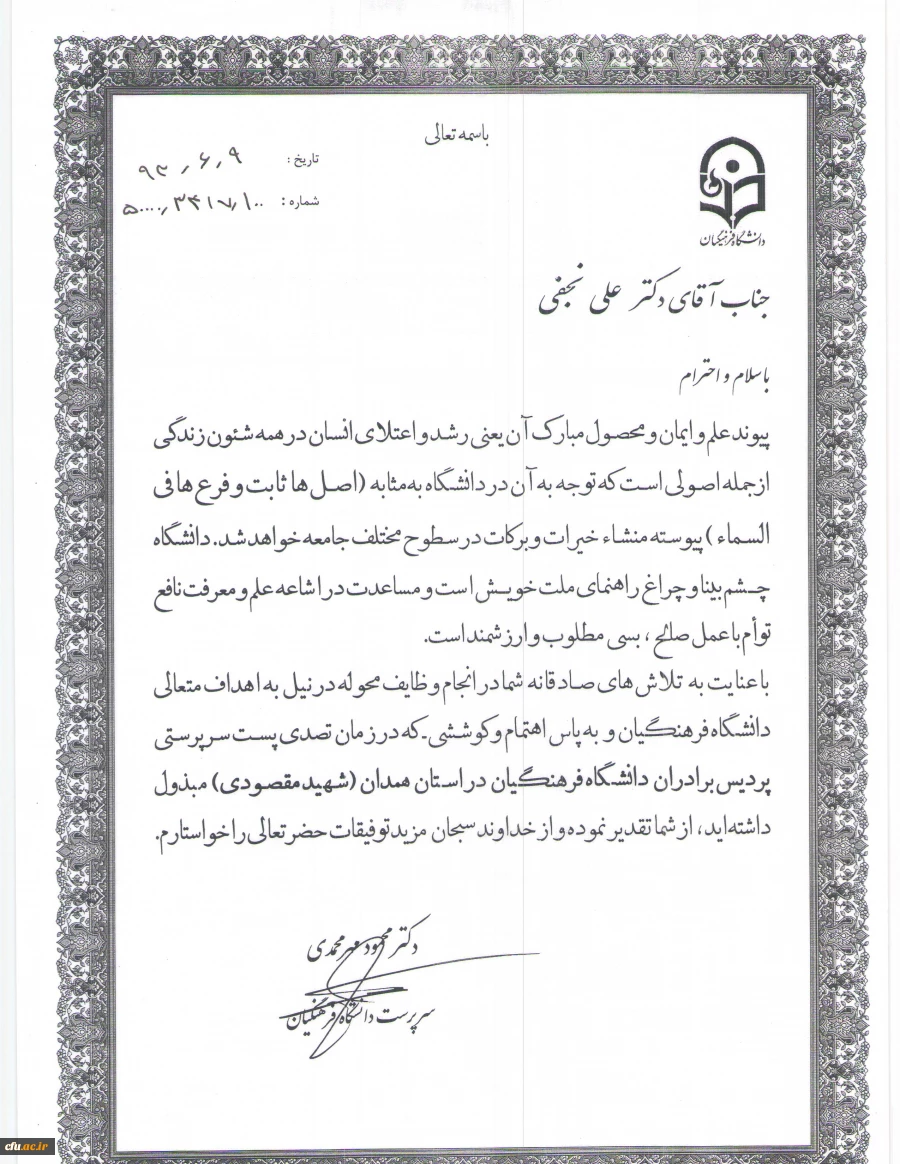 باسمه تعالی
تاریخ: ۹۳٫۶٫۹
شماره: ۵۰۰۰۰٫۳۴۱۷٫۱۰۰
دانشگاه فرهنگیان
جناب آقای دکتر علی نجفی
با سلام و احترام
پیوند علم و ایمان و محصول مبارک آن یعنی رشد و اعتلای انسان در همه شئون زندگی
از جمله اصولی است که توجه به آن در دانشگاه به مثابه (اصل ها ثابت و فرع ها فی
السماء) پیوسته منشاء خیرات و برکات در سطوح مختلف جامعه خواهد شد. دانشگاه
چشم بینا و چراغ راهنمای ملت خویش است و مساعدت در اشاعه علم و معرفت نافع
توأم با عمل صالح، بسی مطلوب و ارزشمند است.
با عنایت به تلاش های صادقانه شما در انجام وظایف محوله در نیل به اهداف متعالی
دانشگاه فرهنگیان و به پاس اهتمام و کوششی که در زمان تصدی پست سرپرستی
پردیس برادران دانشگاه فرهنگیان در استان همدان (شهید مقصودی) مبذول
داشته‌اید، از شما تقدیر نموده و از خداوند سبحان مزید توفیقات حضرتعالی را خواستارم.
دکتر محمود مهرمحمدی
سرپرست دانشگاه فرهنگیان
cfu.ac.ir